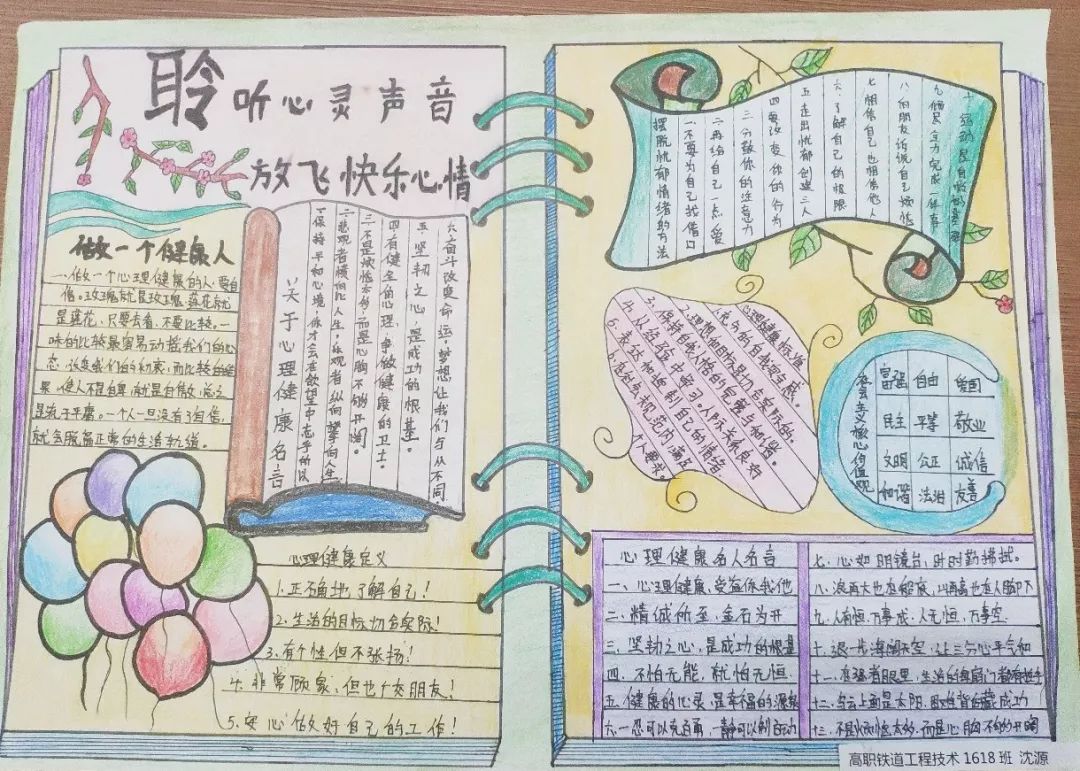 聆听心灵声音
放飞快乐心情
做一个健康人
一、做一个心理健康的人要自
信。玫瑰就是玫瑰,莲花就
是莲花,只要去看,不要比较。一
味的比较最容易动摇我们的心
态
就会脱离正常的生活轨道。
关于心理健康名言
一保持平和心境,你才会在欲望中志乎所以
二悲观者横向比人生,乐观者纵向攀向人生
三不是烦恼太多,而是心胸不够开阔。
四有健全的心理,争做健康的卫士。
五、坚韧之心,是成功的根基。
六奋斗改变命运,梦想让我们与从不同
心理健康定义
1.正确地了解自己!
2.生活的目标切合实际!
3.有个性但不张扬!
4.非常顾家,但也广交朋友!
5.安心做好自己的工作!
摆脱忧郁情绪的方法
一不要为自己找借口
二再给自己一点爱
三分散你的注意力
四要改变你的行为
五走出忧郁创建三人
六、了解自己的极限
七相信自己也相信他人
八、向朋友诉说自己烦恼
九倾尽全力完成一件事
十运动是自信的基础
心理健康标准
1.充分的自我安全感。
2.理想和目标是切合实际的。
3.保持自我人格的完整与和谐。
4.从经验中学习。人际关系良好
5.表达和控制自己的情绪
6.在社会规范内满足
个人要求。
社会主义核心价值观
富强 自由 爱国
民主 平等 敬业
文明 公正 诚信
和谐 法治 友善
心理健康名人名言
一、心理健康,受益你我他
二、精诚所至,金石为开
三、坚韧之心,是成功的根基
四、不怕无能,就怕无恒
五、健康的心灵,是幸福的源泉
六一忍可以克百勇,静可以制百动
七、心如明镜台,时时勤拂拭。
八、浪再大也在船底,山再高也在人脚下
九、人有恒,万事成,人无恒,万事空
十、退一步海阔天空,让三分心平气和
十一、在强者眼里,生活的每扇门都有把手
十二、乌云上面是太阳
十三、不是烦恼太多,而是心胸不够开阔
高职铁道工程技术1618班 沈源